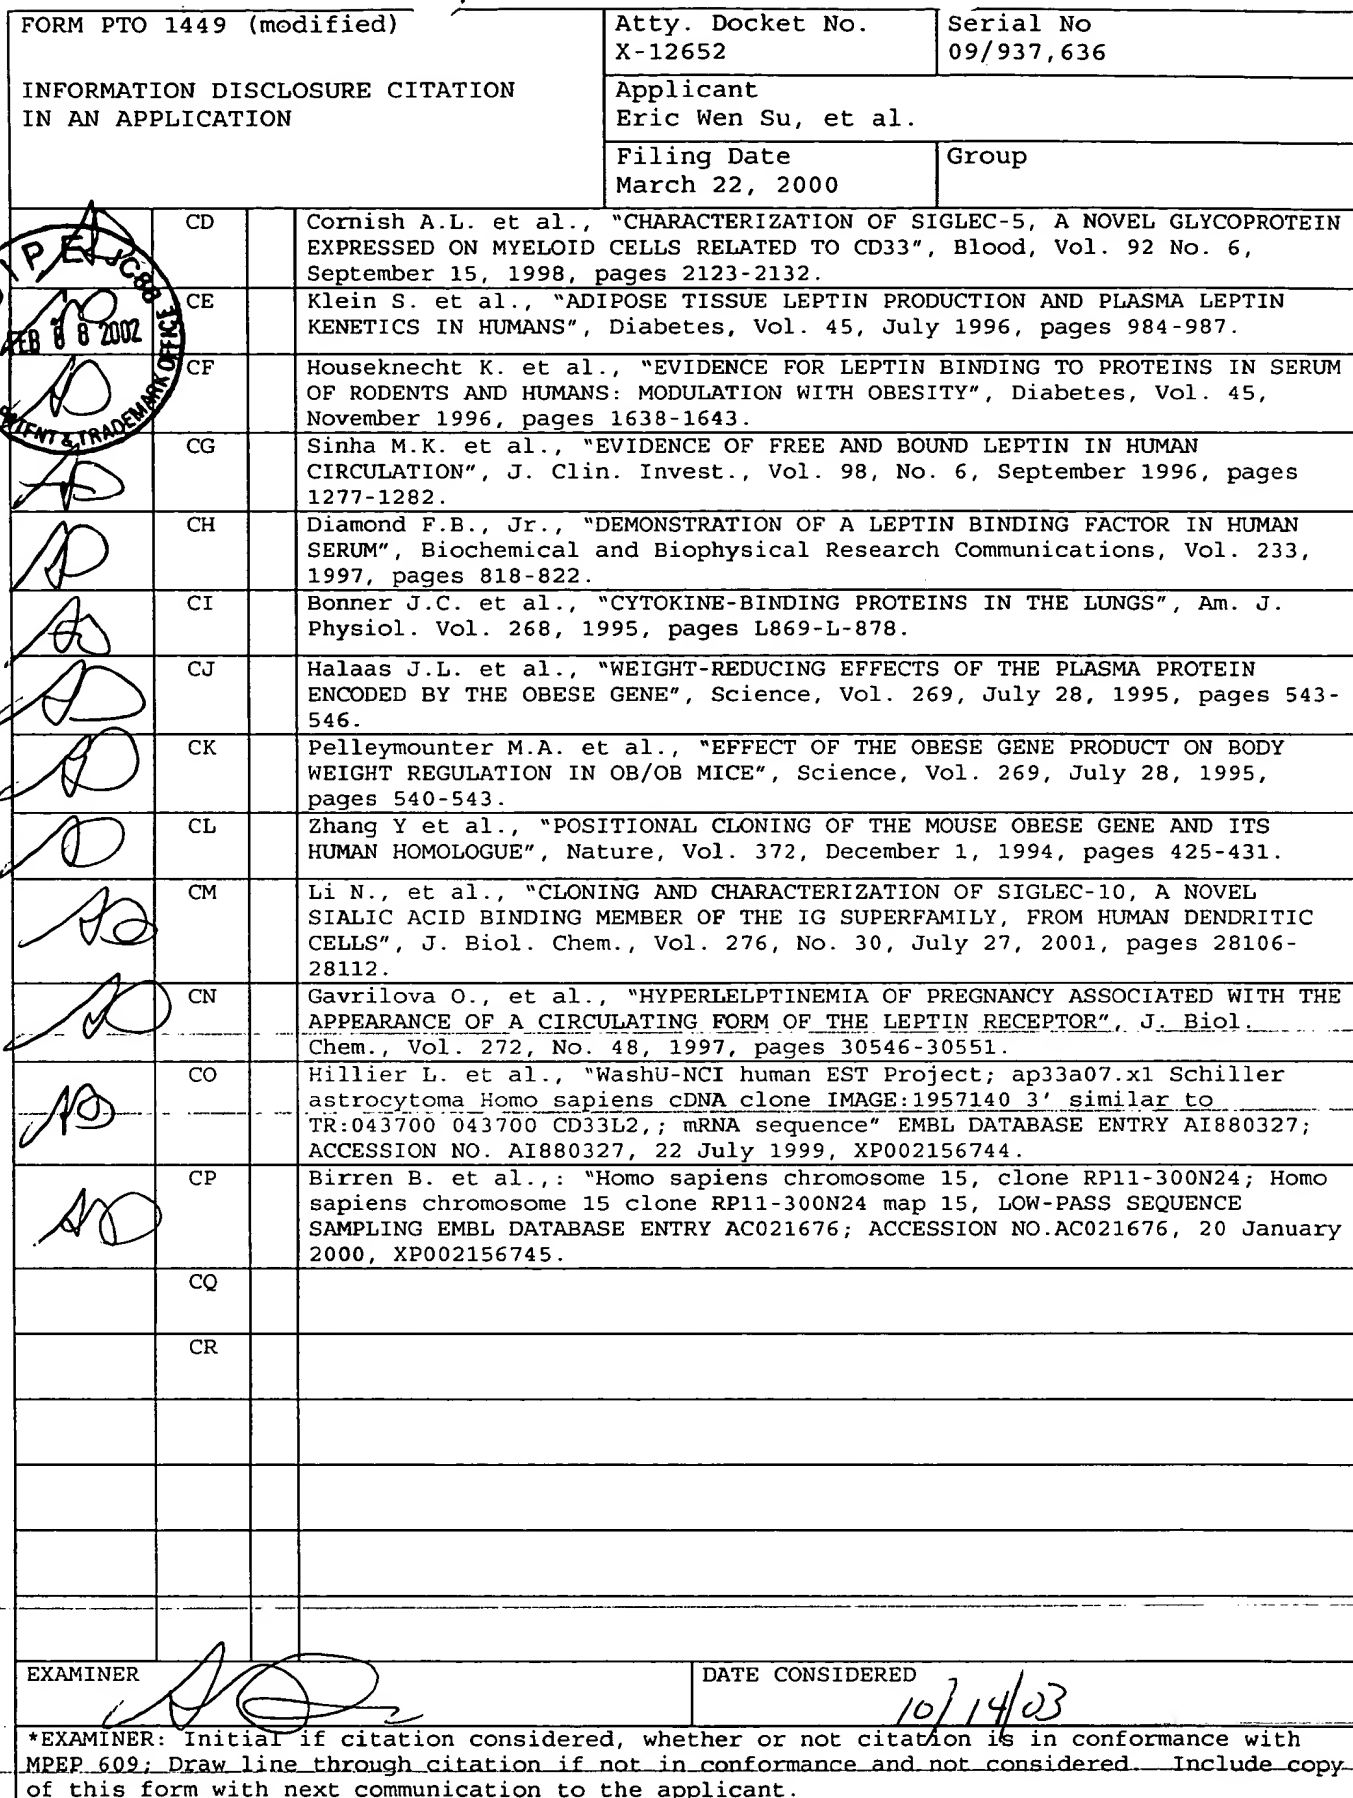 FORM PTO 1449 (modified)
Atty. Docket No.
X-12652
Serial No
09/937,636
INFORMATION DISCLOSURE CITATION
IN AN APPLICATION
Applicant
Eric Wen Su, et al.
Filing Date
March 22, 2000
Group
CD
Cornish A.L. et al., "CHARACTERIZATION OF SIGLEC-5, A NOVEL GLYCOPROTEIN
EXPRESSED ON MYELOID CELLS RELATED TO CD33", Blood, Vol. 92 No. 6,
September 15, 1998, pages 2123-2132.
CE
Klein S. et al., "ADIPOSE TISSUE LEPTIN PRODUCTION AND PLASMA LEPTIN
KENETICS IN HUMANS", Diabetes, Vol. 45, July 1996, pages 984-987.
CF
Houseknecht K. et al., "EVIDENCE FOR LEPTIN BINDING TO PROTEINS IN SERUM
OF RODENTS AND HUMANS: MODULATION WITH OBESITY", Diabetes, Vol. 45,
November 1996, pages 1638-1643.
CG
Sinha M.K. et al., "EVIDENCE OF FREE AND BOUND LEPTIN IN HUMAN
CIRCULATION", J. Clin. Invest., Vol. 98, No. 6, September 1996, pages
1277-1282.
CH
Diamond F.B., Jr., "DEMONSTRATION OF A LEPTIN BINDING FACTOR IN HUMAN
SERUM", Biochemical and Biophysical Research Communications, Vol. 233,
1997, pages 818-822.
CI
Bonner J.C. et al., "CYTOKINE-BINDING PROTEINS IN THE LUNGS", Am. J.
Physiol. Vol. 268, 1995, pages L869-L-878.
CJ
Halaas J.L. et al., "WEIGHT-REDUCING EFFECTS OF THE PLASMA PROTEIN
ENCODED BY THE OBESE GENE", Science, Vol. 269, July 28, 1995, pages 543-
546.
CK
Pelleymounter M.A. et al., "EFFECT OF THE OBESE GENE PRODUCT ON BODY
WEIGHT REGULATION IN OB/OB MICE", Science, Vol. 269, July 28, 1995,
pages 540-543.
CL
Zhang Y et al., "POSITIONAL CLONING OF THE MOUSE OBESE GENE AND ITS
HUMAN HOMOLOGUE", Nature, Vol. 372, December 1, 1994, pages 425-431.
CM
Li N., et al., "CLONING AND CHARACTERIZATION OF SIGLEC-10, A NOVEL
SIALIC ACID BINDING MEMBER OF THE IG SUPERFAMILY, FROM HUMAN DENDRITIC
CELLS", J. Biol. Chem., Vol. 276, No. 30, July 27, 2001, pages 28106-
28112.
CN
Gavrilova O., et al., "HYPERLELPTINEMIA OF PREGNANCY ASSOCIATED WITH THE
APPEARANCE OF A CIRCULATING FORM OF THE LEPTIN RECEPTOR", J. Biol.
Chem., Vol. 272, No. 48, 1997, pages 30546-30551.
CO
Hillier L. et al., "WashU-NCI human EST Project; ap33a07.x1 Schiller
astrocytoma Homo sapiens cDNA clone IMAGE:1957140 3' similar to
TR:043700 043700 CD33L2,; mRNA sequence" EMBL DATABASE ENTRY AI880327;
ACCESSION NO. AI880327, 22 July 1999, XP002156744.
CP
Birren B. et al.,: "Homo sapiens chromosome 15, clone RP11-300N24; Homo
sapiens chromosome 15 clone RP11-300N24 map 15, LOW-PASS SEQUENCE
SAMPLING EMBL DATABASE ENTRY AC021676; ACCESSION NO.AC021676, 20 January
2000, XP002156745.
CQ
CR
EXAMINER
DATE CONSIDERED
10/14/03
*EXAMINER: Initial if citation considered, whether or not citation is in conformance with
MPEP 609; Draw line through citation if not in conformance and not considered. Include copy
of this form with next communication to the applicant.